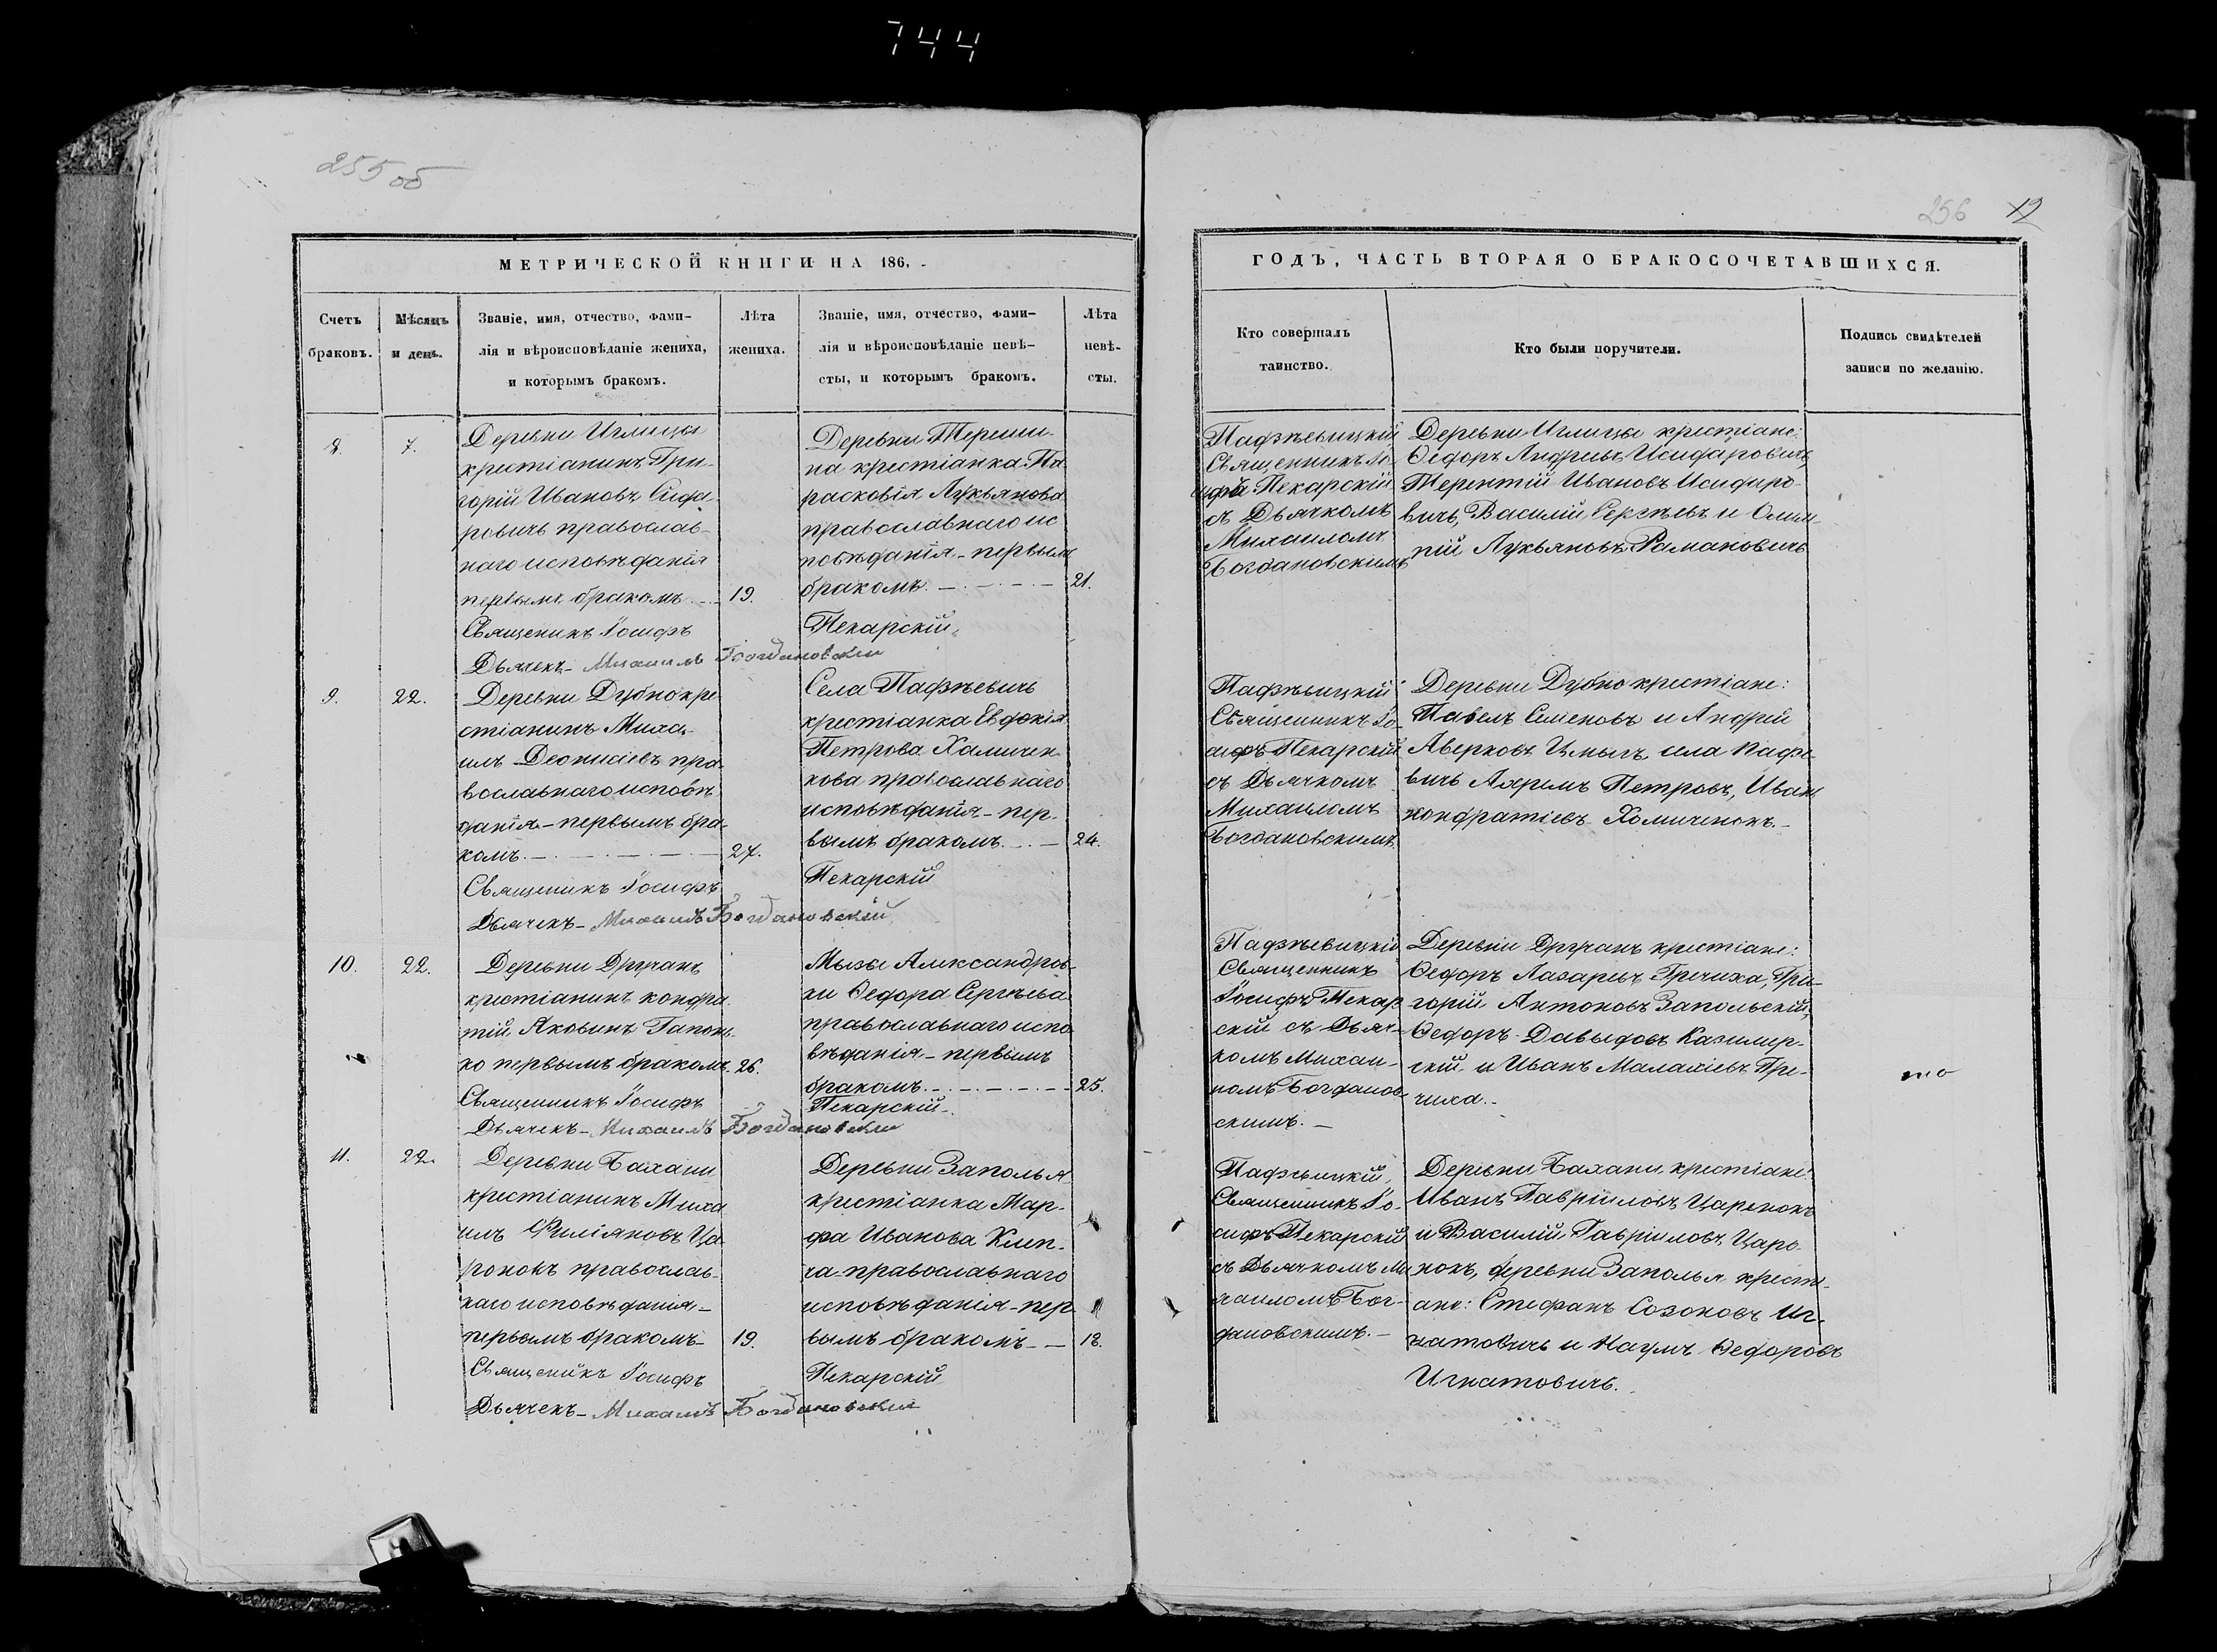 744
255 об
256 12
МЕТРИЧЕСКОЙ КНИГИ НА 186
Счетъ
браковъ.
Мѣсяцъ
и день.
Званіе, имя, отчество, фами-
лія и вѣроисповѣданіе жениха,
и которымъ бракомъ.
Лѣта
жениха.
Званіе, имя, отчество, фами-
лія и вѣроисповѣданіе невѣ-
сты, и которымъ бракомъ.
Лѣта
невѣ-
сты.
ГОДЪ, ЧАСТЬ ВТОРАЯ О БРАКОСОЧЕТАВШИХСЯ.
Кто совершалъ
таинство.
Кто были поручители.
Подпись свидѣтелей
записи по желанію.
8.
7.
Деревни Иглицы
крестіанинъ Гри-
горій Ивановъ Сида-
ровичъ православ-
наго исповѣданія
первымъ бракомъ
19.
Священикъ Іосифъ
Дьячекъ - Михаилъ Богдановскій
Деревни Терeши-
на крестіанка Па-
расковія Лукьянова
православнаго ис
повѣданія - первымъ
бракомъ.
21.
Пекарскій
Пафѣевицкій
Священникъ Іо-
сифъ Пекарскій
съ Дьячкомъ
Михаиломъ
Богдановскимъ
Деревни Иглицы крестіане:
Ѳедоръ Андреевъ Исидаровичъ,
Терентій Ивановъ Исидиро-
вичъ, Василій Сергѣевъ и Олим-
пій Лукьяновъ Рамановичъ
9.
22.
Деревни Дубно кре
стіанинъ Миха-
илъ Деонисіевъ пра-
вославнаго исповѣ-
данія - первымъ бра-
комъ.
27.
Священикъ Іосифъ
Дьячекъ - Михаилъ Богдановскій
Села Пафѣевичъ
крестіанка Евдокія
Петрова Хамичен-
кова православнаго
исповѣданія - пер-
вымъ бракомъ.
24.
Пекарскій
Пафѣевицкій
Священникъ Іо-
сифъ Пекарскій
съ Дьячкомъ
Михаиломъ
Богдановскимъ.
Деревни Дубно крестіане:
Павелъ Семеновъ и Андрей
Аверковъ села Пафѣ-
вичъ Петровъ, Иванъ
Кондратіевъ Хомиченокъ.
10.
22.
Деревни Дручанъ
крестіанинъ Кондра-
тій Яковинъ Гапонь-
ко первымъ бракомъ.
26.
Священникъ Іосифъ
Дьячекъ - Михаилъ Богдановскій
Мызы Александров-
ки Ѳедора Сергѣева
православнаго испо-
вѣданія - первымъ
бракомъ.
25.
Пекарскій
Пафѣевицкій
Священникъ
Іосифъ Пекар-
скій съ Дьяч-
комъ Михаи-
ломъ Богданов-
скимъ.
Деревни Дручанъ крестіане:
Ѳедоръ Лазаревъ Гречиха, Гри-
горій Антоновъ Запольскій,
Ѳедоръ Давыдовъ Казимир-
скій и Иванъ Малахіевъ Гре-
чиха.
11.
22.
Деревни Бахани
крестіанинъ Миха
илъ Филіановъ Ца-
ронокъ православ-
наго исповѣданія -
первымъ бракомъ
19.
Священикъ Іосифъ
Дьячекъ - Михаилъ Богдановскій
Деревни Заполья
крестіанка Мар-
фа Иванова Клеп-
ча - православнаго
исповѣданія - пер
вымъ бракомъ
18.
Пекарскій
Пафѣевицкій
Священникъ Іо-
сифъ Пекарскій
съ Дьячкомъ Ми
хаиломъ Бог-
дановскимъ.
Деревни Бахани крестіане:
Иванъ Гавріиловъ Царенокъ
и Василій Гавріиловъ Царо-
нокъ, деревни Заполья крести-
ане: Стефанъ Созоновъ Иг-
натовичъ и Наумъ Ѳедоровъ
Игнатовичъ.